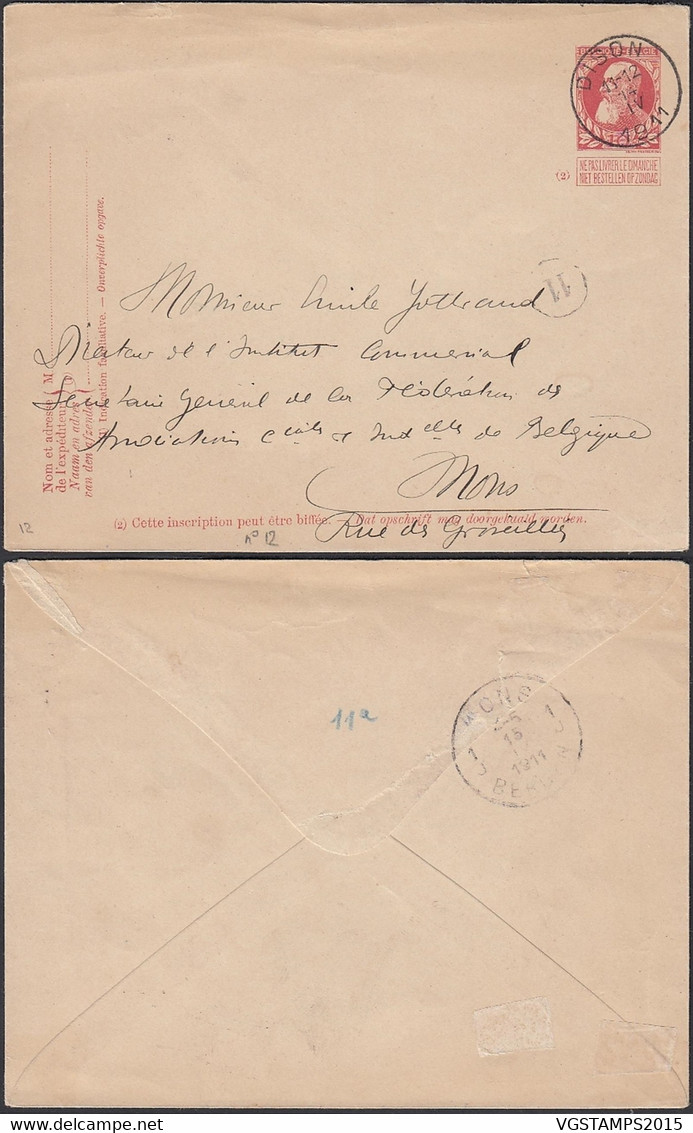 DISON
11-12
IV
1911
NE PAS LIVRER LE DIMANCHE
NIET BESTELLEN OP ZONDAG
(2)
11
Monsieur Emile Jottrand
Directeur de l'Institut Commercial
Secrétaire Général de la Fédération des
Associations Cciales & Indelles de Belgique
Mons
Rue des Groseilliers
Nom et adresse M
de l'expéditeur
Naam en adres
van den afzender
(1) Indication facultative. — Onverplichte opgave.
(2) Cette inscription peut être biffée. — Dat opschrift mag doorgehaald worden.
12
n° 12
11a
MONS
15
1911
1 1
delcampe.net
VGSTAMPS2015